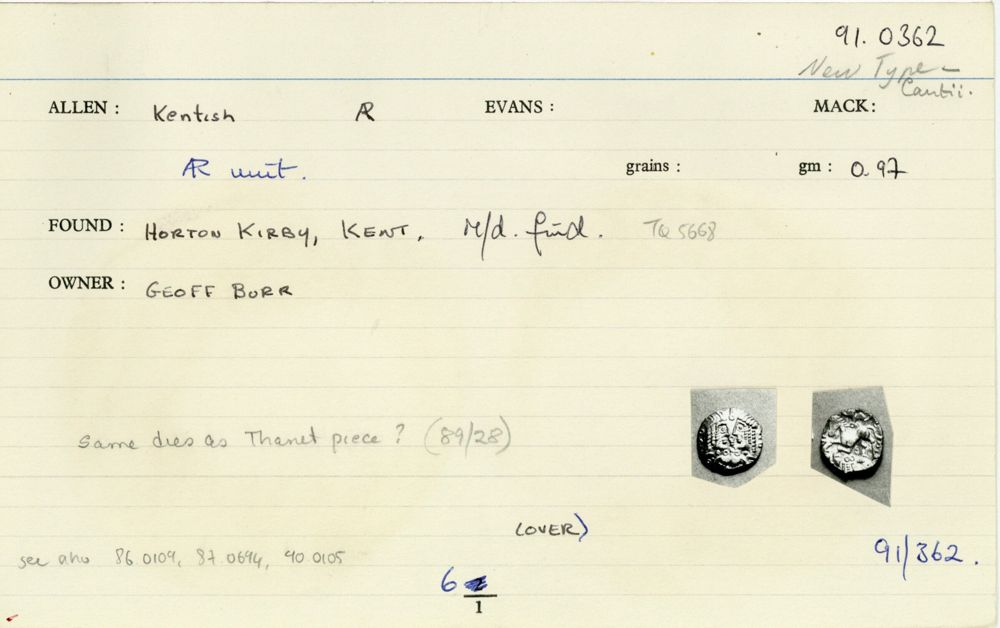 91.0362
New Type –
Cantii.
ALLEN : Kentish AR EVANS : MACK:
AR unit. grains : gm : 0.97
FOUND : HORTON KIRBY, KENT. M/d. find. TQ 5668
OWNER : GEOFF BURR
Same dies as Thanet piece ? (89/28)
(OVER)
see also 86.0109, 87.0694, 90.0105
91/362.
6
1